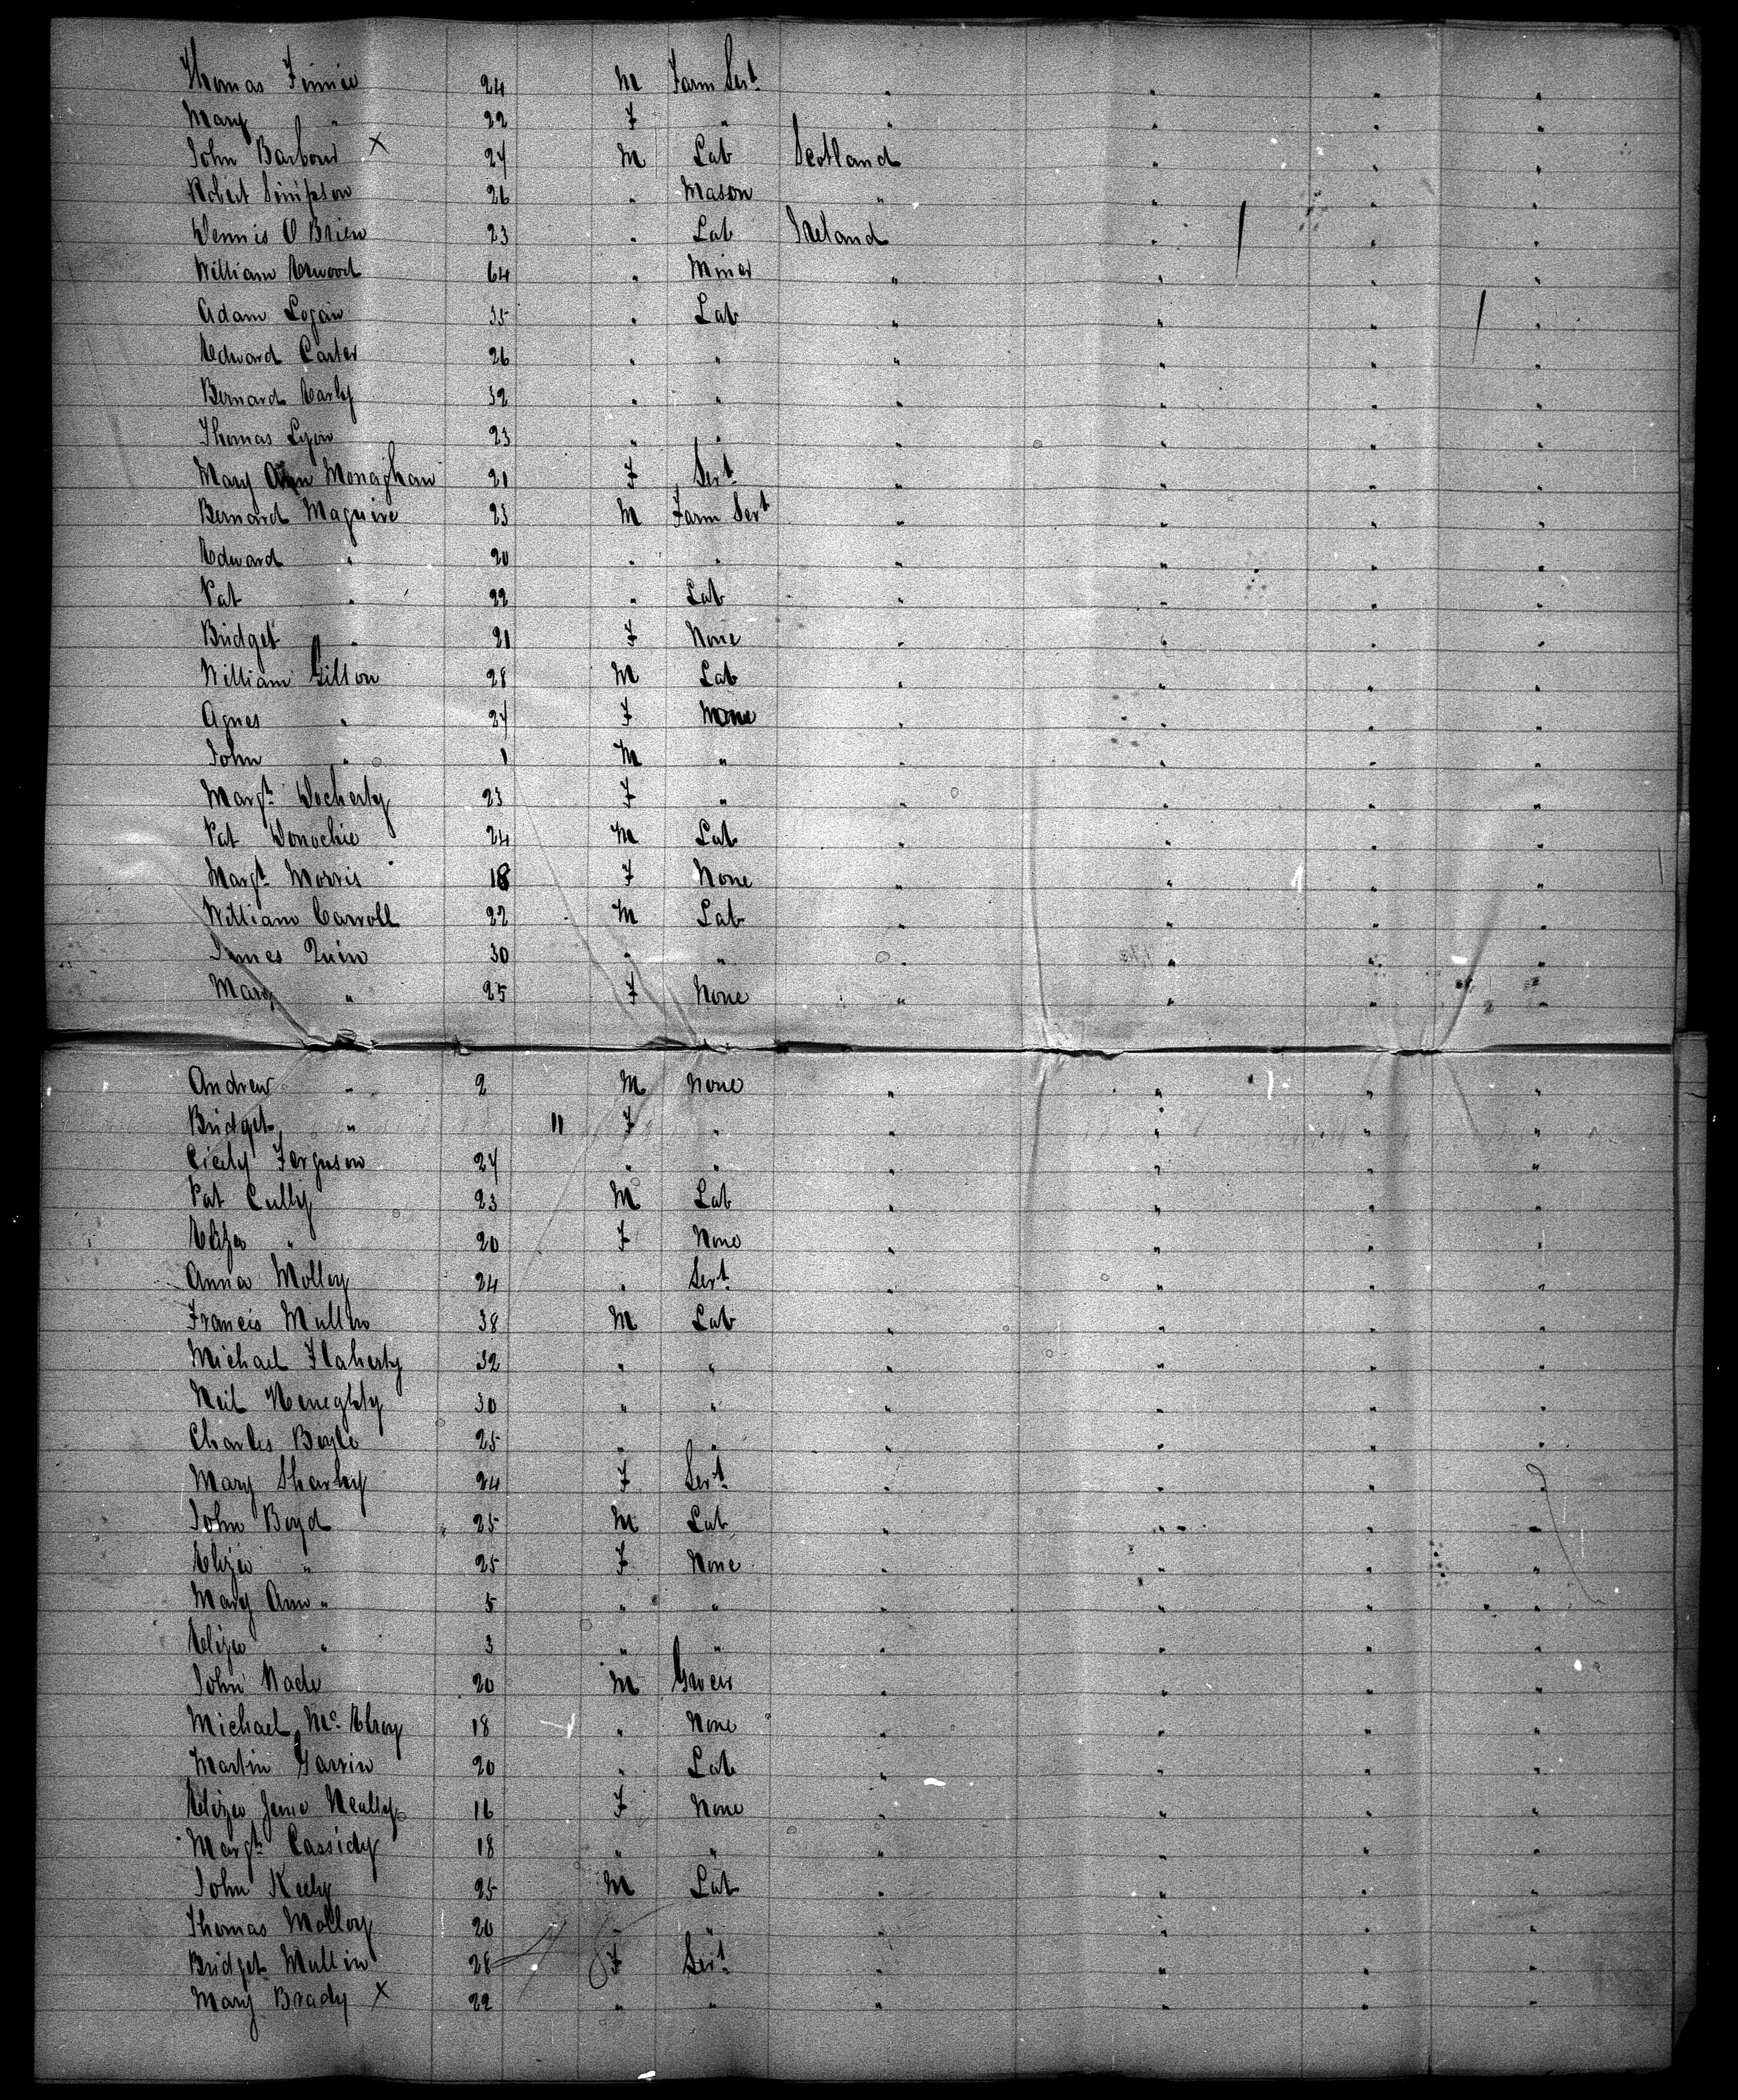 Thomas Finnie 24 M Farm Sert " " " "
Mary " 22 F " " " " "
John Barbour X 27 M Lab Scotland " " "
Robert Simpson 26 " Mason " " " "
Dennis O Brien 23 " Lab Ireland " " "
William 64 " Miner " " " "
Adam Logan 35 " Lab " " " "
Edward Carter 26 " " " " " "
Bernard Early 32 " " " " " "
Thomas Lyon 23 " " " " " "
Mary Ann Monaghan 21 F Sert " " " "
Bernard Maguire 23 M Farm Sert " " " "
Edward " 20 " " " " " "
Pat " 22 " Lab " " " "
Bridget " 21 F None " " " "
William Gilson 28 M Lab " " " "
Agnes " 27 F None " " " "
John " 1 M " " " " "
Margt Docherty 23 F " " " " "
Pat Donochie 24 M Lab " " " "
Margt Morris 18 F None " " " "
William Carroll 22 M Lab " " " "
James Quin 30 " " " " " "
Mary " 25 F None " " " "
Andrew " 2 M None " " " "
Bridget " 11 F " " " " "
Cicily Ferguson 27 " " " " " "
Pat Cully 23 M Lab " " " "
Eliza " 20 F None " " " "
Anna Molloy 24 " Sert " " " "
Francis Mullen 38 M Lab " " " "
Michael Flaherty 32 " " " " " "
Neil 30 " " " " " "
Charles Boyle 25 " " " " " "
Mary Sharkey 24 F Sert " " " "
John Boyd 25 M Lab " " " "
Eliza " 25 F None " " " "
Mary Ann " 5 " " " " " "
Eliza " 3 " " " " " "
John Wade 20 M Grocer " " " "
Michael Mc Elroy 18 " None " " " "
Martin Garrin 20 " Lab " " " "
Eliza Jane Neally 16 F None " " " "
Margt Cassidy 18 " " " " " "
John Keely 25 M Lab " " " "
Thomas Molloy 20 " " " " " "
Bridget Mullin 28 F Sert " " " "
Mary Brady X 22 " " " " " "